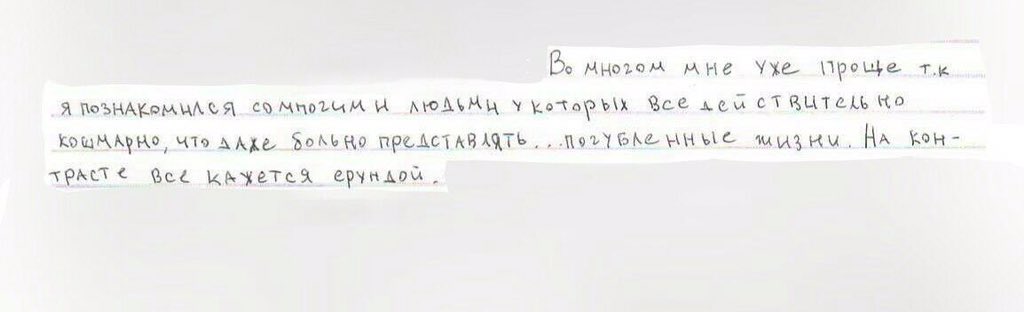 Во многом мне уже проще т.к
я познакомился со многими людьми у которых все действительно
кошмарно, что даже больно представлять...погубленные жизни. На кон-
трасте все кажется ерундой.